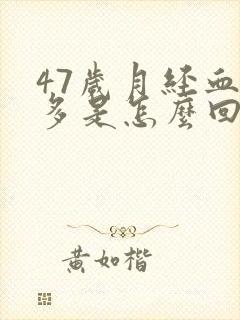 47歲月経血
多是怎麼回
黃如楷